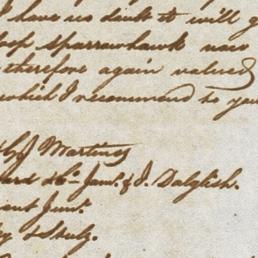 I have no doubt it will g
oop Sparrowhawk now
therefore again valued
which I recommend to you
Martines
ard & Co. Jam.s & J. Dalglish.
Jun.r
& Stulz.